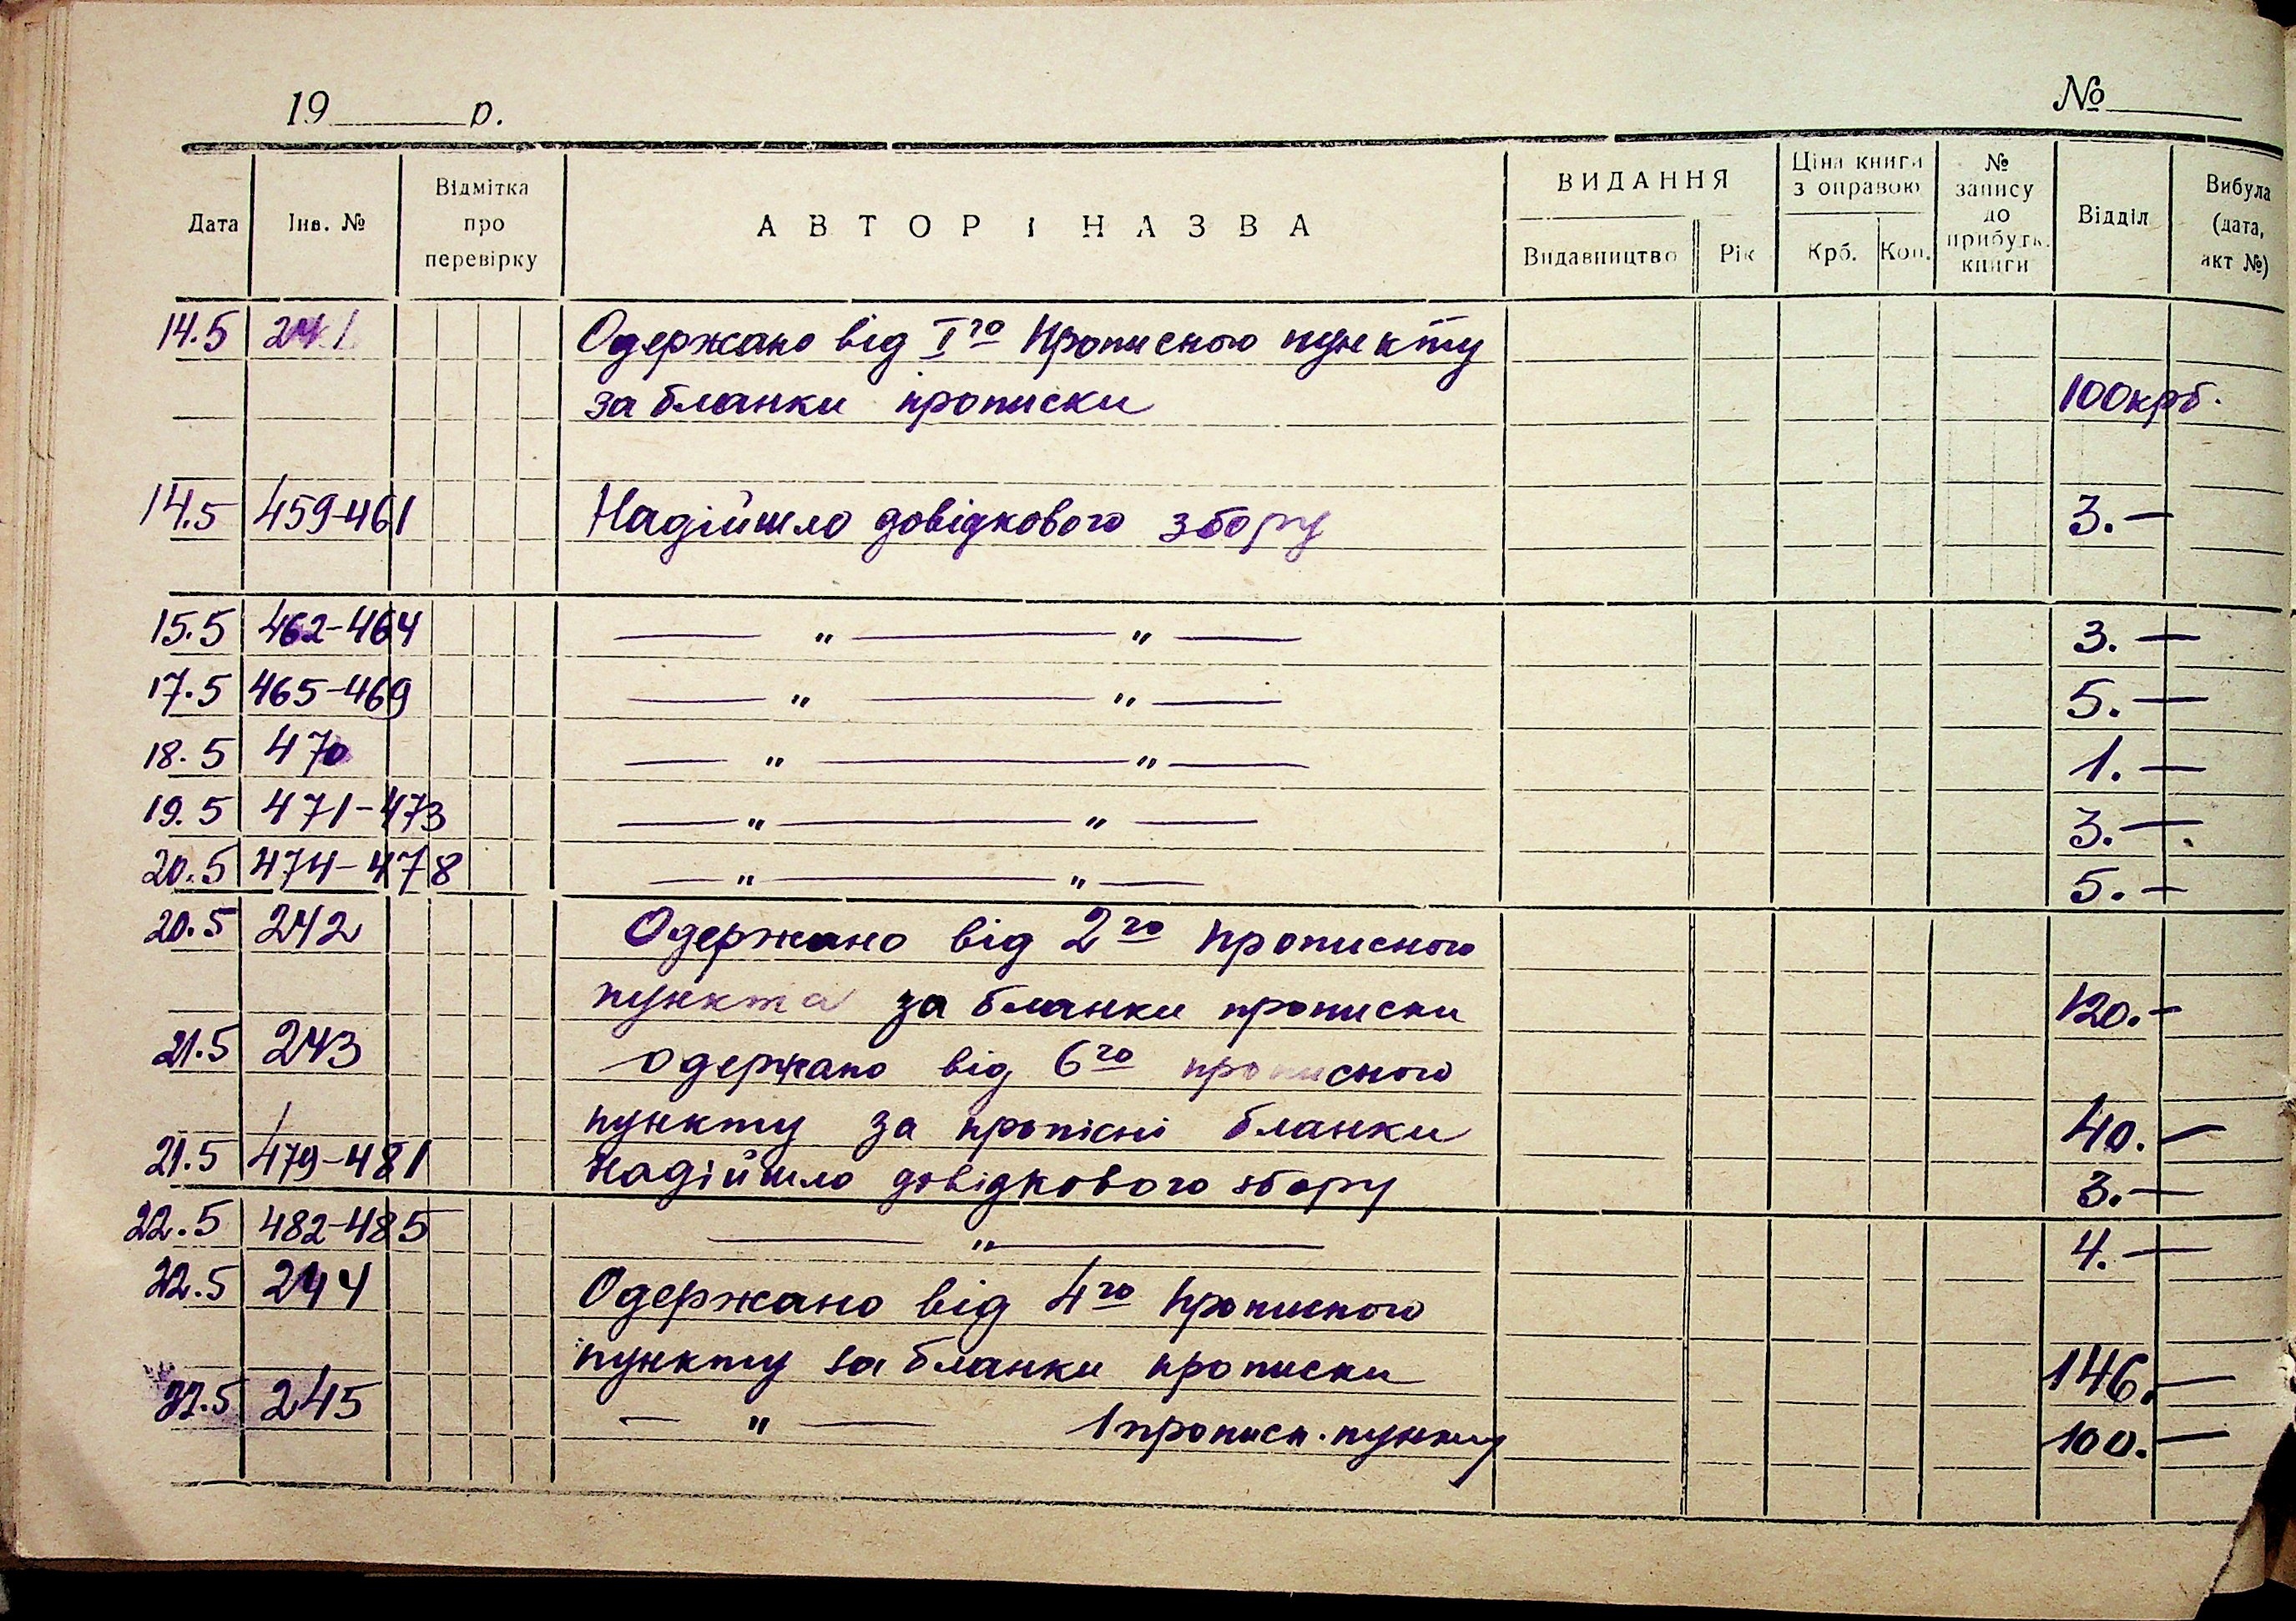 19 р. №
Дата Інв. № Відмітка про перевірку АВТОР І НАЗВА ВИДАННЯ Видавництво Рік Ціна книги з оправою Крб. Коп. № запису до прибутк. книги Відділ Вибула (дата, акт №)
14.5 241 Одержано від Iго Прописного пункту
за бланки прописки 100 крб.
14.5 459-461 Надійшло довідкового збору 3.—
15.5 462-464 — " — " — 3.—
17.5 465-469 — " — " — 5.—
18.5 470 — " — " — 1.—
19.5 471-473 — " — " — 3.—
20.5 474-478 — " — " — 5.—
20.5 242 Одержано від 2го прописного
пункта за бланки прописки 120.—
21.5 243 одержано від 6го прописного
пункту за пропісні бланки 40.—
21.5 479-481 Надійшло довідкового збору 3.—
22.5 482-485 — " — 4.—
22.5 244 Одержано від 4го прописного
пункту за бланки прописки 146.—
245 — " — 1 прописн. пункту 100.—